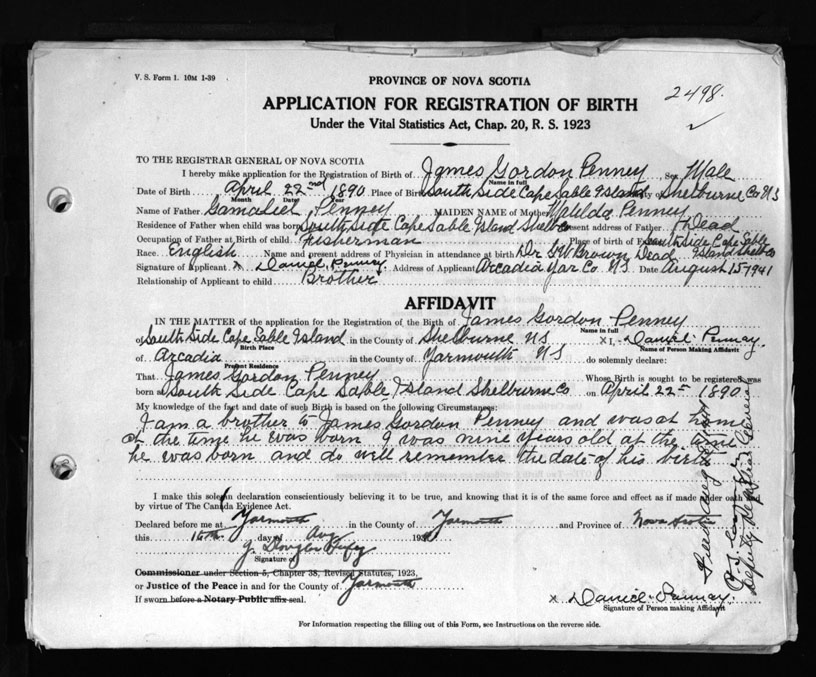 V. S. Form 1. 10M 1-39
PROVINCE OF NOVA SCOTIA
2498.
APPLICATION FOR REGISTRATION OF BIRTH
Under the Vital Statistics Act, Chap. 20, R. S. 1923
TO THE REGISTRAR GENERAL OF NOVA SCOTIA
I hereby make application for the Registration of Birth of James Gordon Penney Sex Male
Name in full
Date of Birth April 22nd 1890 Place of Birth South Side Cape Sable Island County of Shelburne Co NS
Month Date Year
Name of Father Gamaliel Penney MAIDEN NAME of Mother Matilda Penney
Residence of Father when child was born South Side Cape Sable Island Shelb Co Present address of Father Dead
Occupation of Father at Birth of child Fisherman Place of birth of Father South Side Cape Sable Island Shelb Co
Race English Name and present address of Physician in attendance at birth Dr GW Brown Dead
Signature of Applicant x Daniel Penney. Address of Applicant Arcadia Yar Co. N.S. Date August 15-1941
Relationship of Applicant to child Brother
AFFIDAVIT
IN THE MATTER of the application for the Registration of the Birth of James Gordon Penney
Name in full
of South Side Cape Sable Island in the County of Shelburne NS X I, Daniel Penney.
Birth Place Name of Person Making Affidavit
of Arcadia in the County of Yarmouth N.S do solemnly declare:
Present Residence
That James Gordon Penney Whose Birth is sought to be registered was
born at South Side Cape Sable Island Shelburne Co on April 22nd 1890
My knowledge of the fact and date of such Birth is based on the following Circumstances:
I am a brother to James Gordon Penney and was at home
at the time he was born I was nine years old at the time
he was born and do well remember the date of his birth
I make this solemn declaration conscientiously believing it to be true, and knowing that it is of the same force and effect as if made under oath and
by virtue of The Canada Evidence Act.
Declared before me at Yarmouth in the County of Yarmouth and Province of Nova Scotia
this 16th day of Aug 194
J. Douglas
Signature of
Commissioner under Section 5, Chapter 38, Revised Statutes, 1923,
or Justice of the Peace in and for the County of Yarmouth
If sworn before a Notary Public affix seal.
x Daniel Penney.
Signature of Person making Affidavit
Deputy Registrar General
For Information respecting the filling out of this Form, see Instructions on the reverse side.